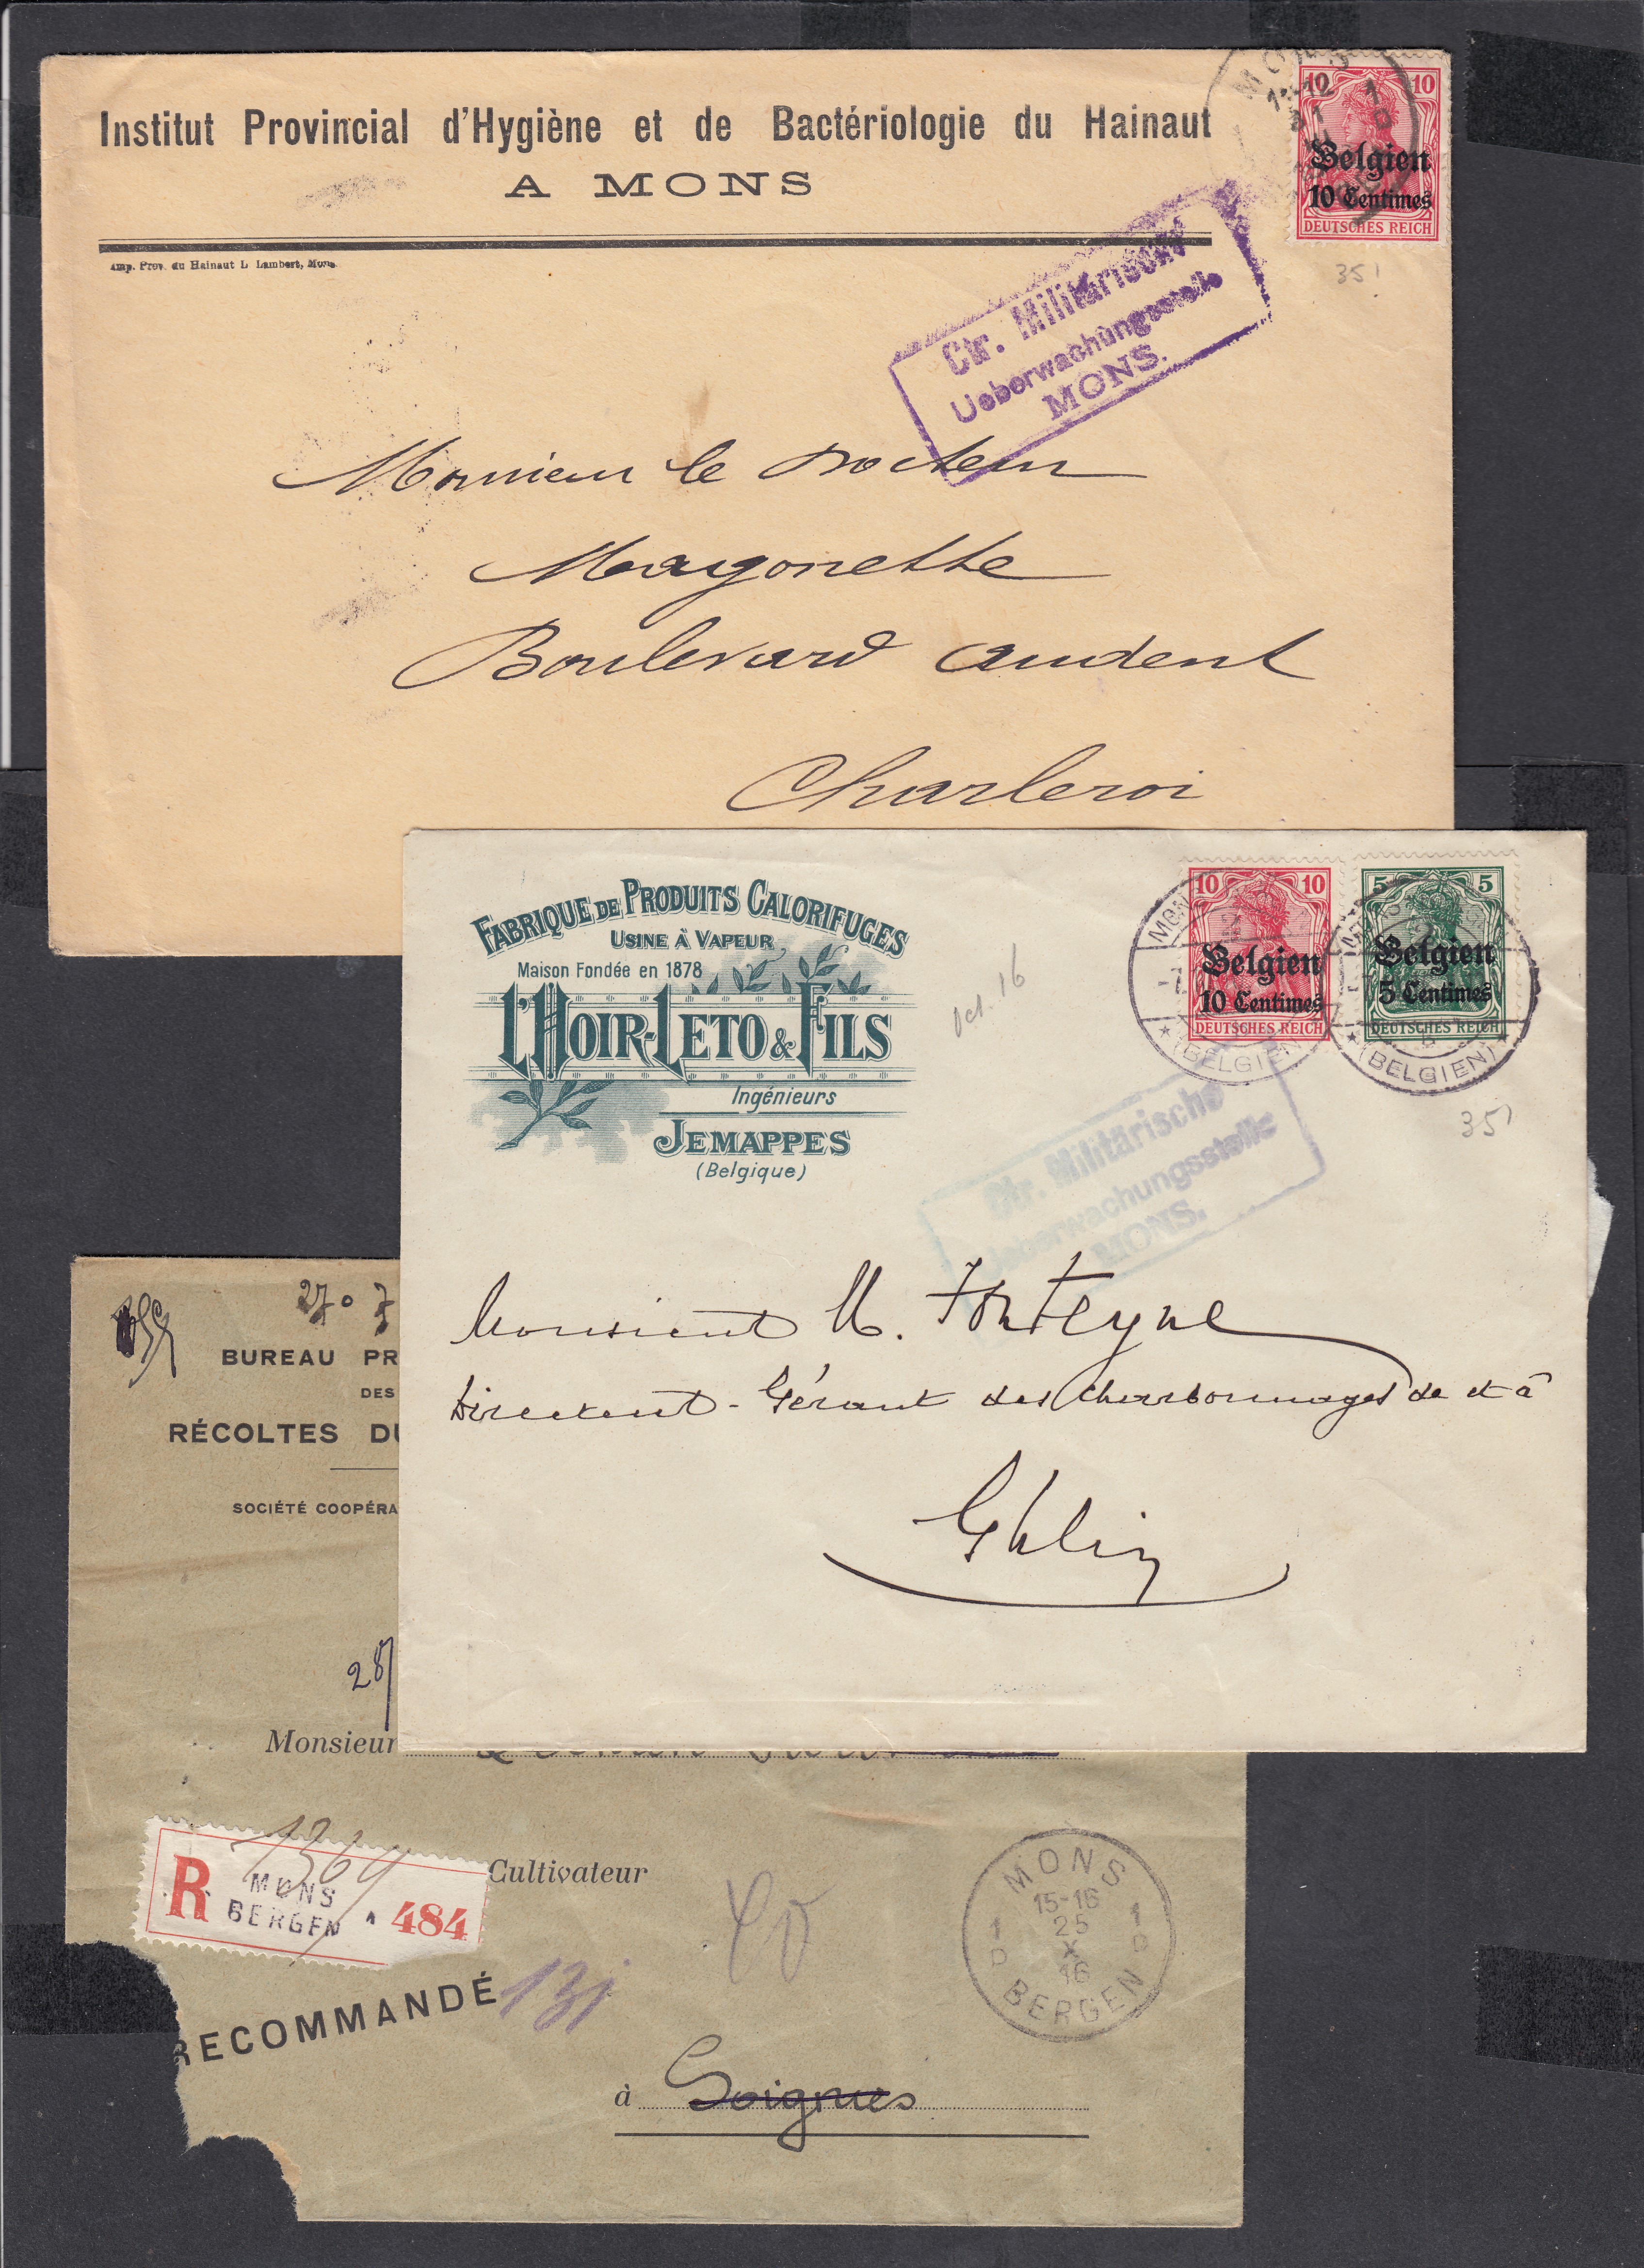 Institut Provincial d'Hygiène et de Bactériologie du Hainaut
A MONS
Imp. Prov. du Hainaut L. Lambert, Mons
10 10
Belgien
10 Centimes
DEUTSCHES REICH
35
Ctr. Militärische
Ueberwachungsstelle
MONS.
Monsieur le Docteur
Magonette
Boulevard Audent
Charleroi
FABRIQUE DE PRODUITS CALORIFUGES
USINE À VAPEUR
Maison Fondée en 1878
L'HOIR-LETO & FILS
Ingénieurs
JEMAPPES
(Belgique)
Oct. 16
10 10
Belgien
10 Centimes
DEUTSCHES REICH
5 5
Belgien
5 Centimes
DEUTSCHES REICH
MON
(BELGIEN)
(BELGIEN)
35
Ctr. Militärische
Ueberwachungsstelle
MONS.
Monsieur M. Fonteyne
Directeur-Gérant des Charbonnages de et à
Ghlin
BUREAU PR
DES
RÉCOLTES DU
SOCIÉTÉ COOPÉRA
28
Monsieur
Cultivateur
R MONS
BERGEN A 484
1369
RECOMMANDÉ
131
MONS
15-16
25
X
16
BERGEN
1D 1D
à Soignies